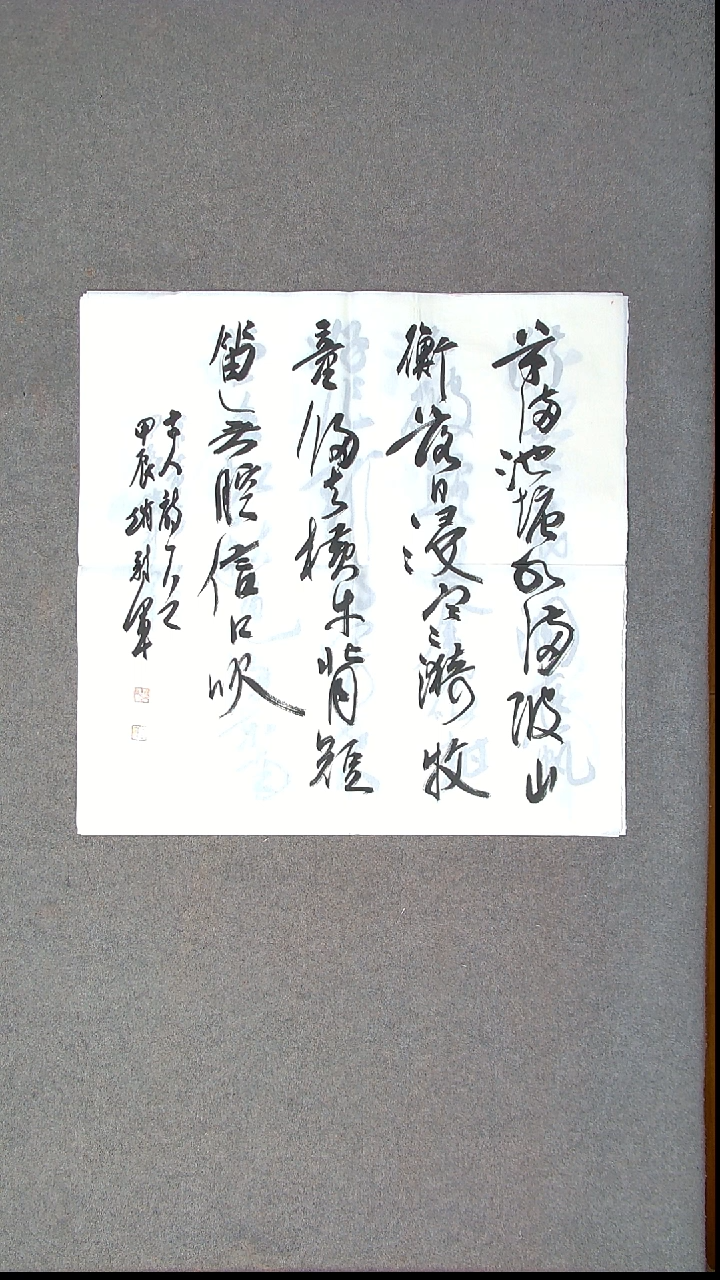 草满池塘水满陂山
衔落日浸寒漪牧
童归去横牛背短
笛无腔信口吹
古人诗一首
甲辰